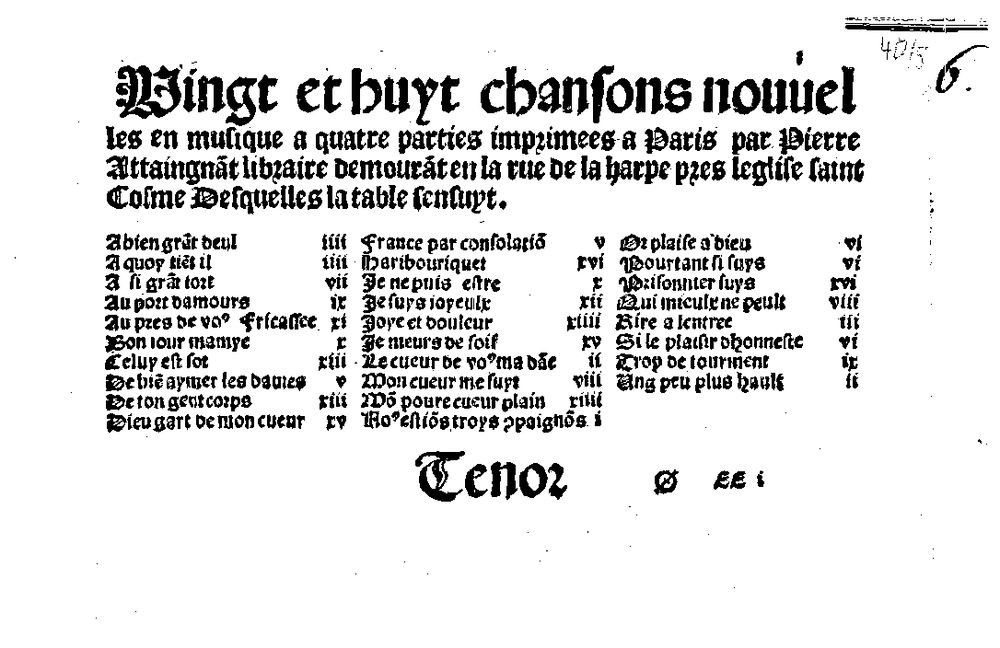 40/5
6.
Vingt et huyt chansons nouuel
les en musique a quatre parties imprimees a Paris par Pierre
Attaingnãt libraire demourãt en la rue de la harpe pres leglise saint
Cosme Desquelles la table sensuyt.
A bien grãt deul iiii
A quoy tiẽt il iiii
A si grãt tort vii
Au port damours ix
Au pres de vo⁹ Fricassee xi
Bon iour mamye x
Celuy est sot xiii
De biẽ aymer les dames v
De ton gent corps xiii
Dieu gart de mon cueur xv
France par consolatiõ v
Haribouriquet xvi
Je ne puis estre x
Je suys ioyeulx xii
Joye et douleur xiiii
Je meurs de soif xv
Le cueur de vo⁹ ma dãe ii
Mon cueur me suyt viii
Mõ poure cueur plain xiiii
No⁹ estiõs troys ꝯpaignõs i
Or plaise a dieu vi
Pourtant si suys vi
Prisonnier suys xvi
Qui mieulx ne peult viii
Rire a lentree iii
Si le plaisir dhonneste vi
Trop de tourment ix
Ung peu plus hault ii
Tenor
Ø EE i